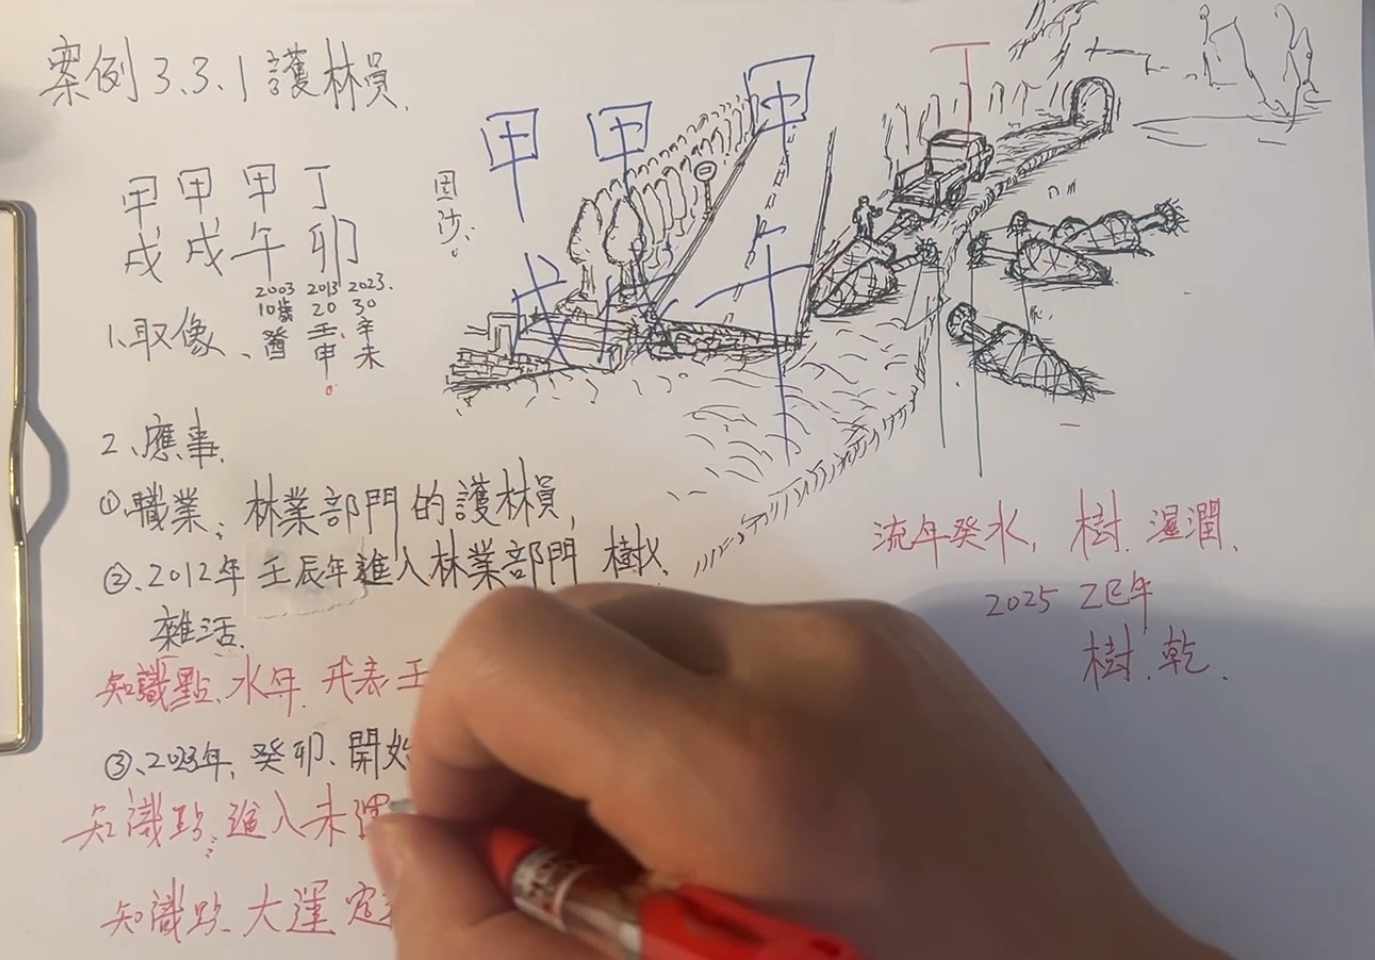 案例3.3.1護林員.
甲甲甲丁
戌戌午卯
2003 2013 2023.
10歲 20 30
酉 壬申 辛未
1、取像、
固沙.
甲 甲 甲 丁
戌 戌 午
2、應事.
①、職業：林業部門的護林員,
②、2012年壬辰年進入林業部門 樹
雜活.
知識點、水年.代表壬
③、2023年、癸卯、開始
知識點：進入未運
知識點、大運
流年癸水, 樹.濕潤.
2025 乙巳年
樹.乾.